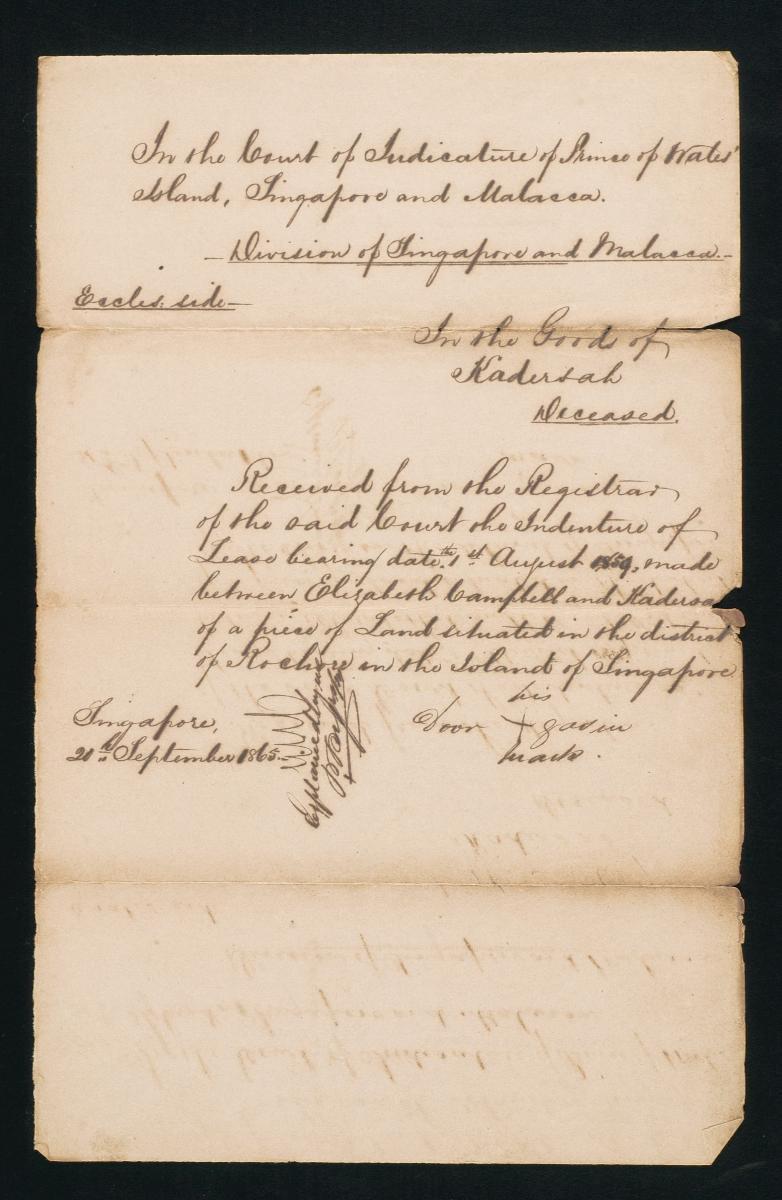 In the Court of Judicature of Prince of Wales'
Island, Singapore and Malacca.
— Division of Singapore and Malacca. —
Eccles: side —
In the Goods of
Kadersah
Deceased.
Received from the Registrar
of the said Court the Indenture of
Lease bearing date the 1st August 1859, made
between Elizabeth Campbell and Kadersa
of a piece of Land situated in the district
of Rochore in the Island of Singapore
his
Door + gasin
mark.
Singapore,
20th September 1865.
Explained by me